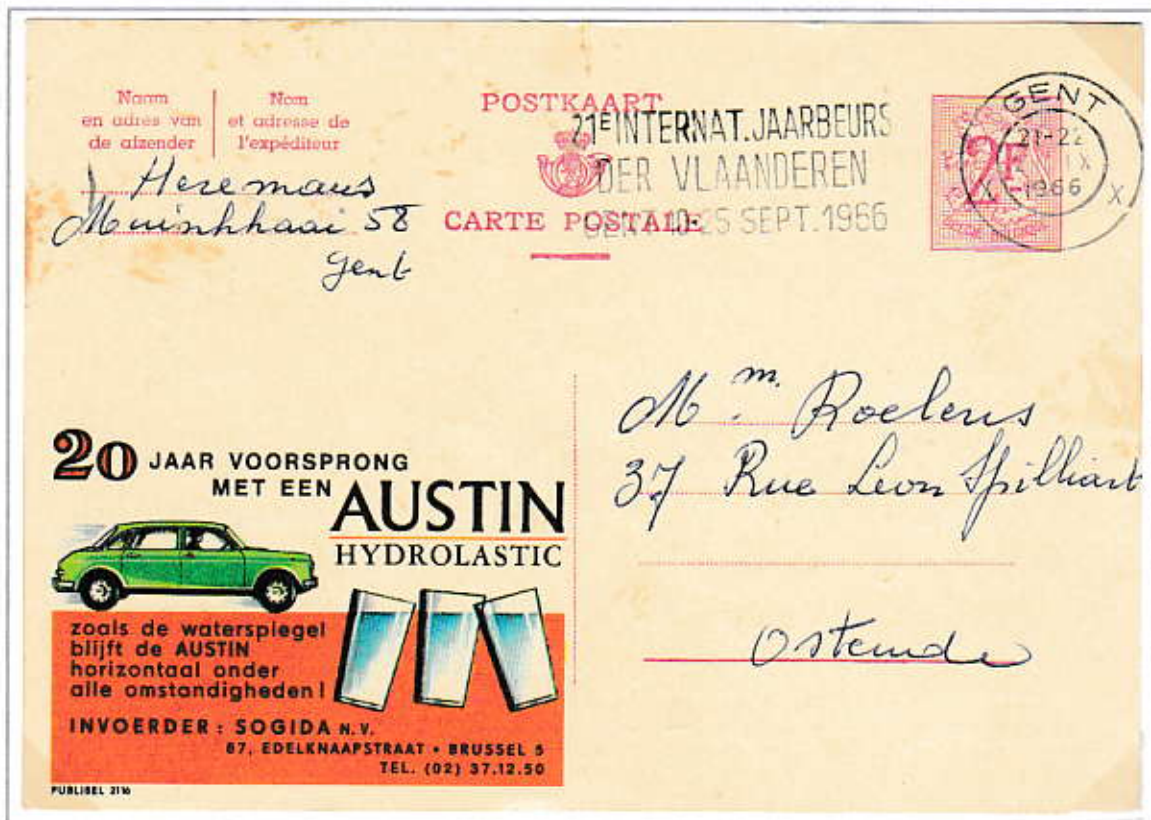 Naam
en adres van
de afzender
Nom
et adresse de
l'expéditeur
POSTKAART
CARTE POSTALE
21E INTERNAT. JAARBEURS
DER VLAANDEREN
GENT 10-25 SEPT. 1966
2F
GENT
21-22
IX
1966
X X
Heremans
Muinkkaai 58
Gent
Mm. Roelens
37 Rue Leon Spilliart
Ostende
20 JAAR VOORSPRONG
MET EEN AUSTIN
HYDROLASTIC
zoals de waterspiegel
blijft de AUSTIN
horizontaal onder
alle omstandigheden!
INVOERDER : SOGIDA N.V.
87, EDELKNAAPSTRAAT • BRUSSEL 5
TEL. (02) 37.12.50
PUBLIBEL 2116